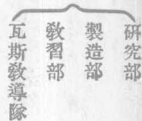 研究部
製造部
教習部
瓦斯教導隊